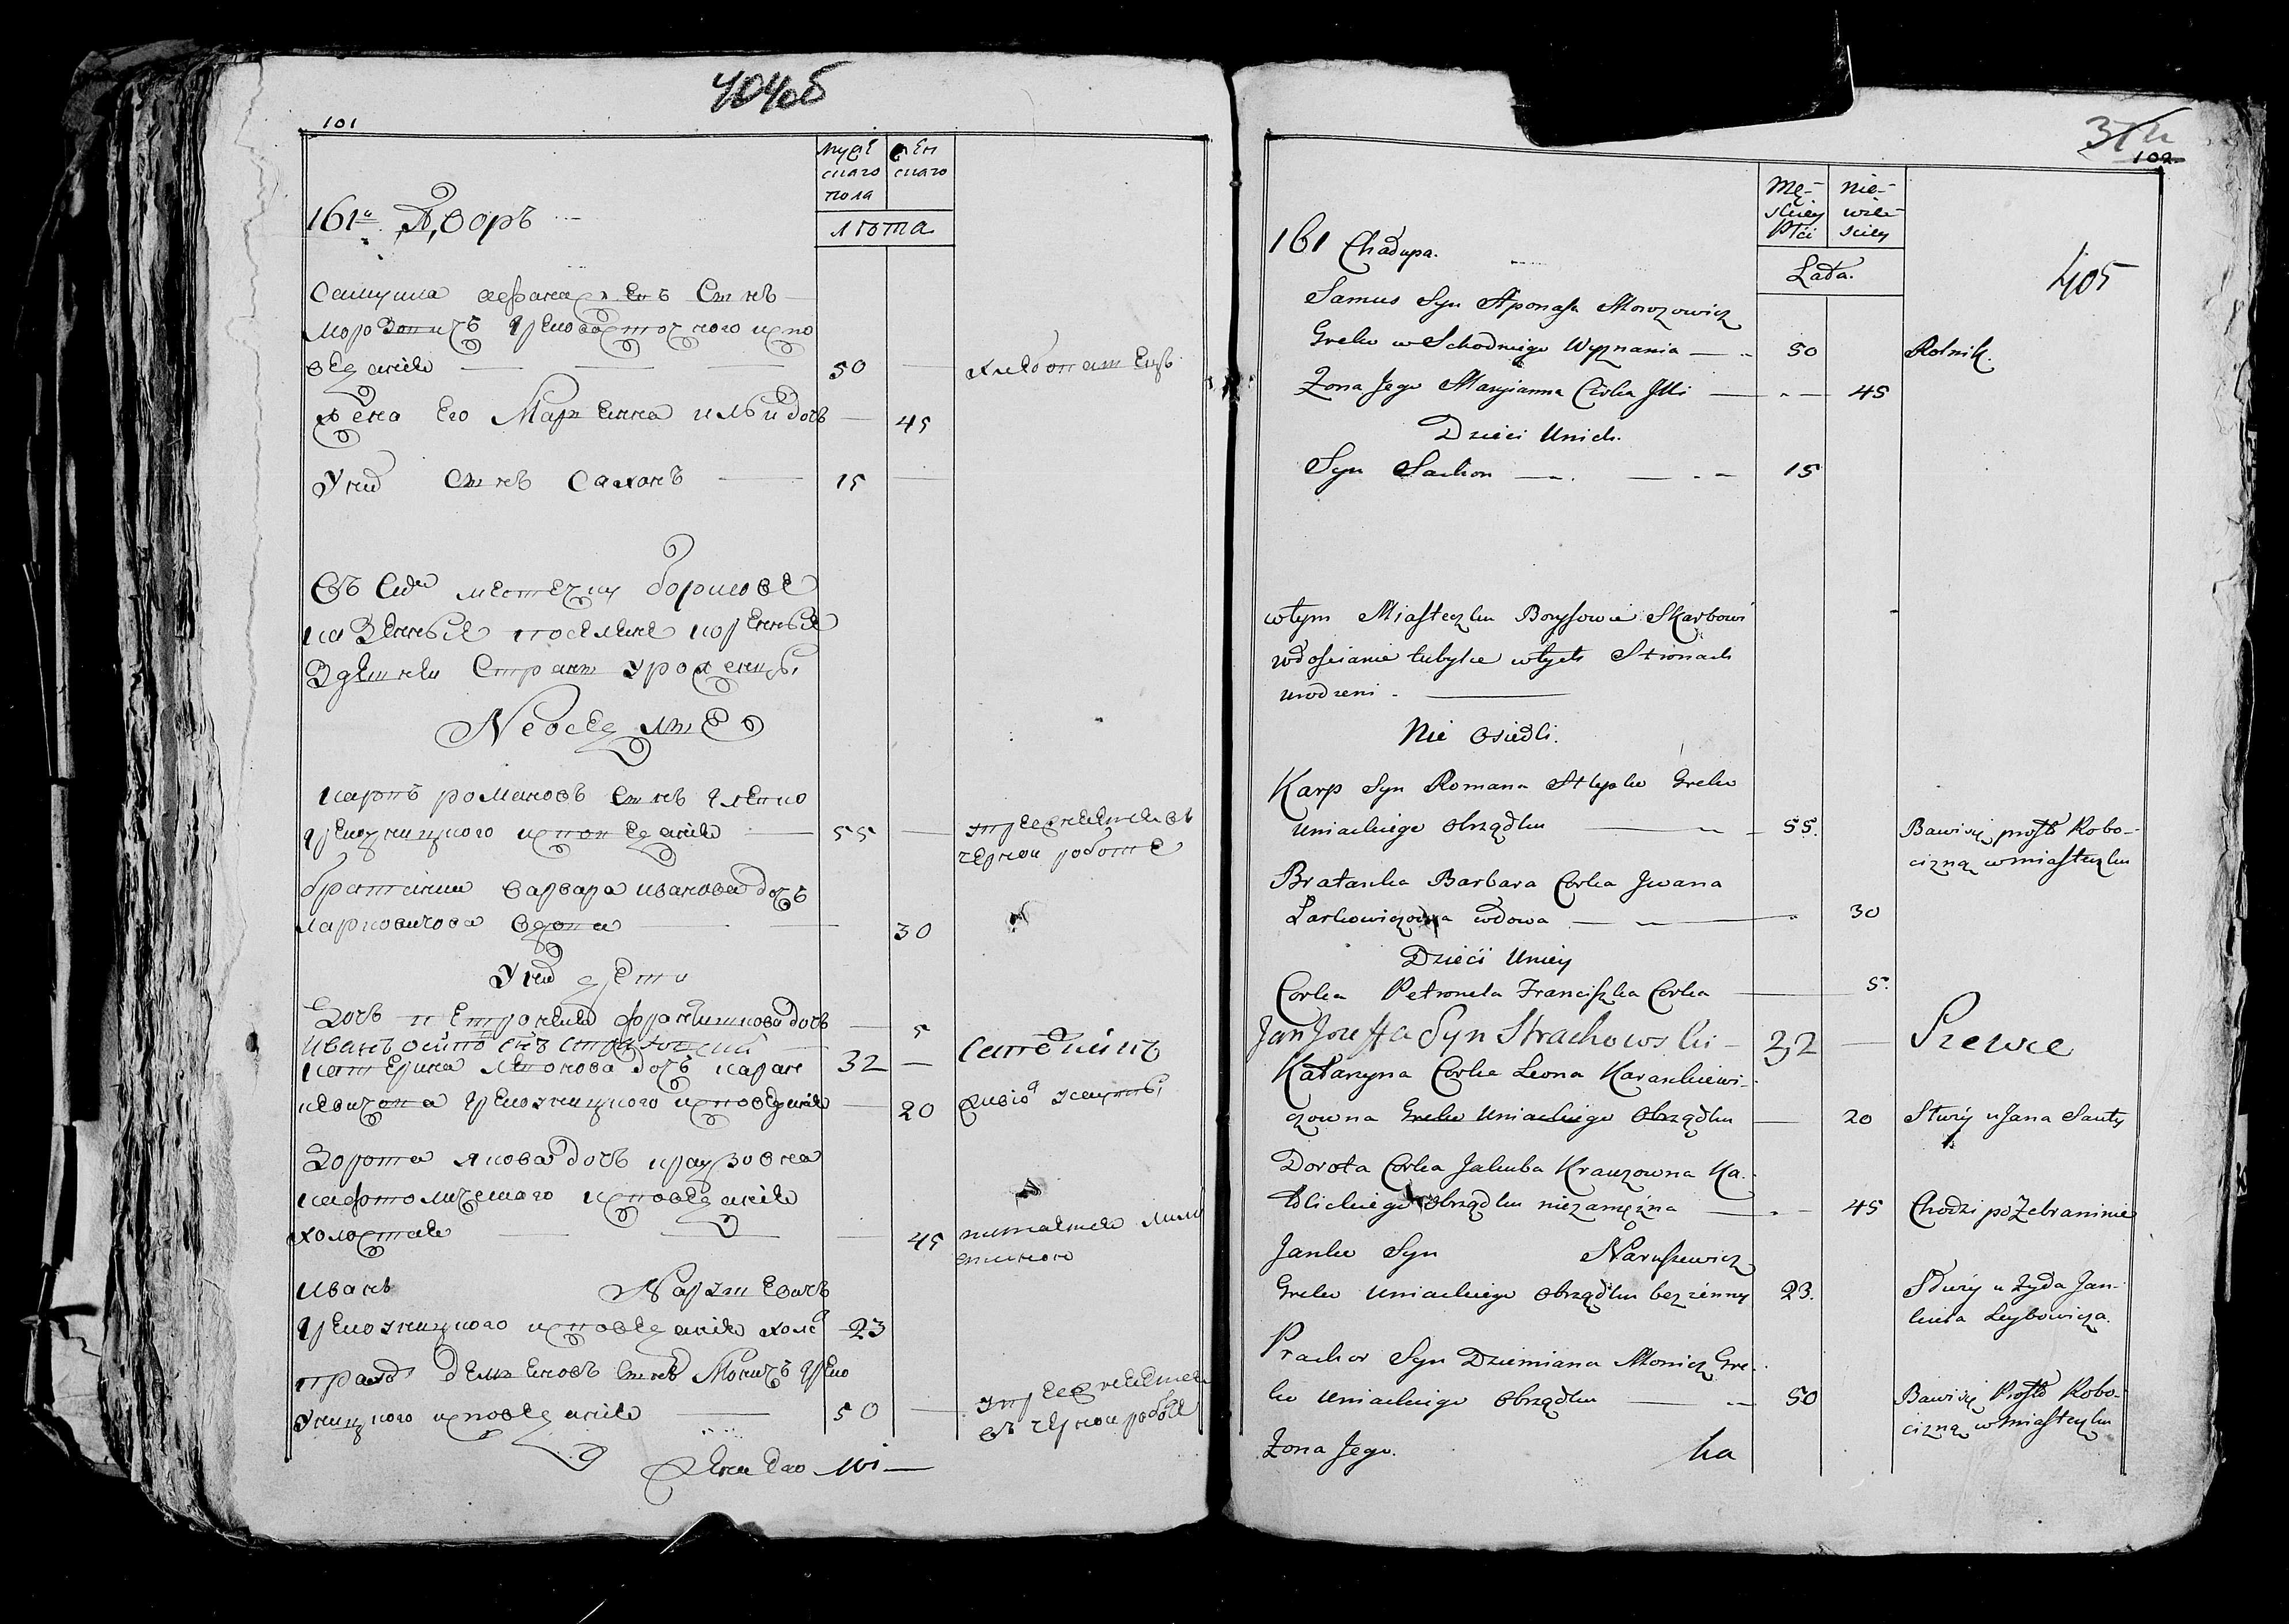 404об
101
Мужескаго пола
женскаго
лѣта
161й Дворъ
Самуила Афанасіевъ Сынъ
Морозовичъ Грековосточного испо
вѣданія — 50 — хлебопашецъ
жена Его Маріенна ильи дочь — 45
У нихъ Сынъ Сахонъ — 15
Въ Семъ местечку борисове
казенные поселяне коренные
Здешнихъ Странъ уроженцы
Неоседлые
карпъ романовъ Сынъ
грекоуницкого исповеданія — 55 — упражняется въ
черной работе
братанка варвара иванова дочь
ларковичова вдова — 30
У ней дети
дочь петронеля францишкова дочь — 5
Иванъ осипо снъ страховский 32 — сапожникъ
катерина леонова дочь каран
кевичовна грекоуницкого исповеданія — 20
дорота якова дочь краузовна
кафтолическаго исповеданія
холостая — 45 питается мило
стинею
иванъ Нарушевичъ
грекоуницкого исповеданія холос 23
прахоръ деменовъ сынъ Моничъ греко
уницкого исповеданія — 50 — упражняется
въ черной работе
жена Ево
374
102
Mę-
skiey
Płci
nie-
wie-
sciey
Lata.
405
161 Chałupa.
Samus Syn Aponasa Morozowicz
Greko wSchodniego Wyznania — 50 Rolnik.
Zona Jego Maryianna Corka Jlli — 45
Dzieci Unich.
Syn Sachon — 15
wtym Miasteczku Borysowie Skarbowi
włoscianie tubylce wtych Stronach
urodzeni.
Nie Osiedli.
Karp Syn Romana Greko
Uniackiego Obrządku — 55. Bawi się prostą Robo-
cizną wmiasteczku
Bratanka Barbara Corka Jwana
Larkowiczowna wdowa — 30
Dzieci Uniey
Corka Petronela Franciszka Corka — 5.
Jan Joseffa Syn Strachowski — 32 — Szewc
Katarzyna Corka Leona Karankiewi-
czowna Greko Uniackiego Obrządku — 20 Służy u Jana Sauty
Dorota Corka Jakuba Krauzowna Ka-
tolickiego Obrządku niezamężna — 45 Chodzi po Zebraninie
Janko Syn Naruszewicz
Greko Uniackiego Obrządku bezzenny 23. Służy u Zyda Jan-
kiela Leybowicza.
Prachor Syn Dziemiana Monicz Gre-
ko Uniackiego Obrządku — 50 Bawi się Prostą Robo-
cizną wmiasteczku
Zona Jego. ka